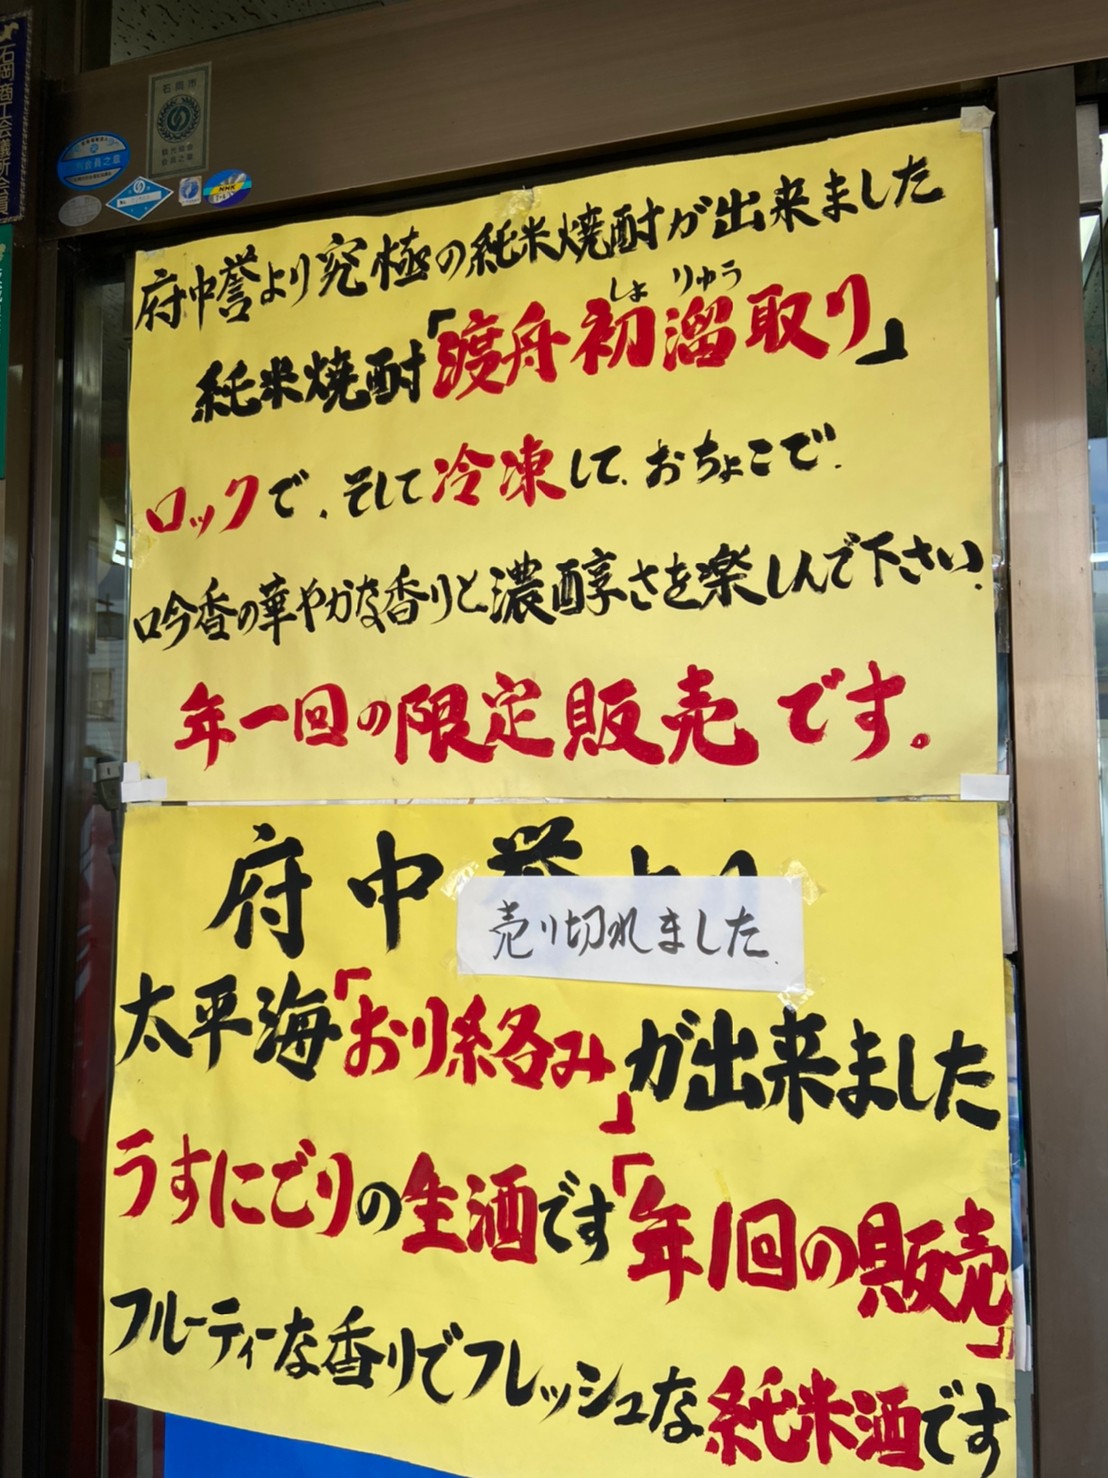 石岡商工会議所会員
石岡市
会員之証
NHK
府中誉より究極の純米焼酎が出来ました
しょ りゅう
純米焼酎「渡舟初溜取り」
ロックで、そして冷凍して、おちょこで。
吟香の華やかな香りと濃醇さを楽しんで下さい。
年一回の限定販売です。
府中誉より
売り切れました。
太平海「おり絡み」が出来ました
うすにごりの生酒です「年1回の販売」
フルーティーな香りでフレッシュな純米酒です